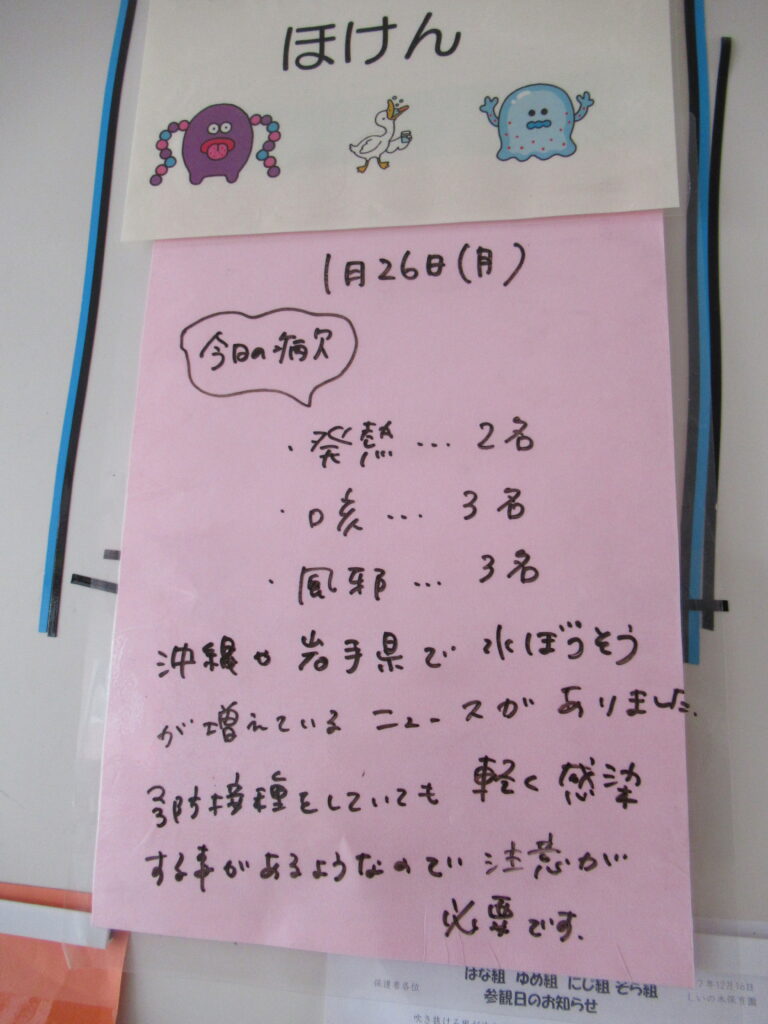 ほけん
1月26日(月)
今日の病欠
・発熱…2名
・咳…3名
・風邪…3名
沖縄や岩手県で水ぼうそう
が増えているニュースがありました.
予防接種をしていても軽く感染
する事があるようなので注意が
必要です.
保護者各位
はな組 ゆめ組 にじ組 そら組
参観日のお知らせ
7年12月16日
しいの木保育園